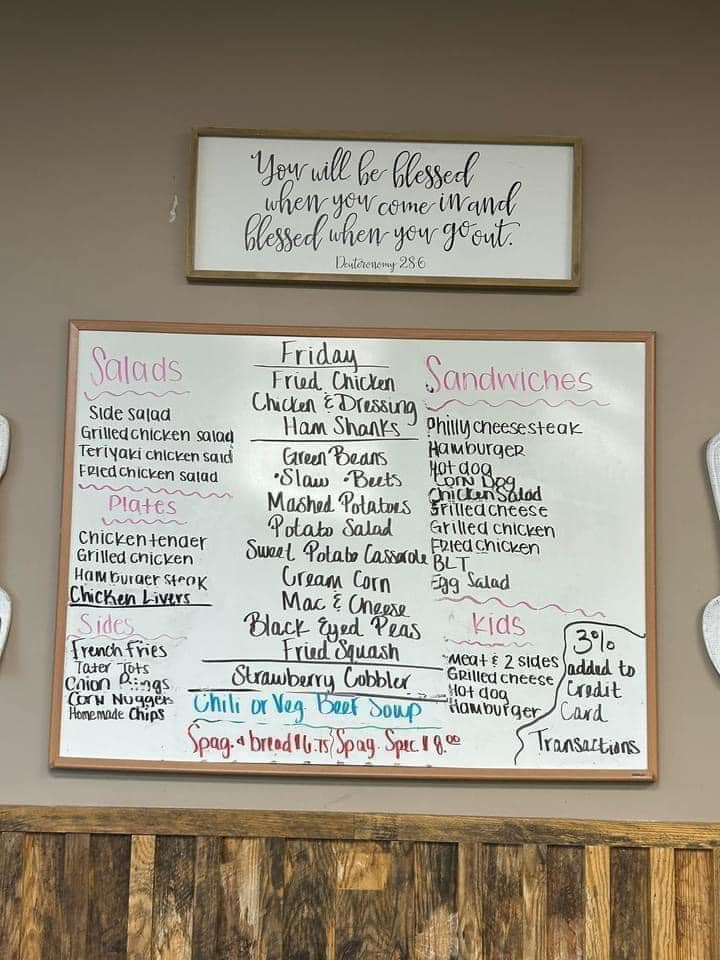 You will be blessed
when you come in and
blessed when you go out.
Deuteronomy 28:6
Salads
Side salad
Grilled chicken salad
Teriyaki chicken sald
Fried chicken salad
Plates
Chicken tender
Grilled chicken
Hamburger steak
Chicken Livers
Sides
French fries
Tater Tots
Onion Rings
Corn Nuggets
Homemade Chips
Friday
Fried Chicken
Chicken & Dressing
Ham Shanks
Green Beans
•Slaw •Beets
Mashed Potatoes
Potato Salad
Sweet Potato Casserole
Cream Corn
Mac & Cheese
Black Eyed Peas
Fried Squash
Strawberry Cobbler
Chili or Veg. Beef Soup
Spag. & bread $6.75/Spag. Spec $8.00
Sandwiches
Philly cheesesteak
Hamburger
Hot dog
Corn Dog
Chicken Salad
Grilled cheese
Grilled chicken
Fried chicken
BLT
Egg Salad
Kids
Meat & 2 sides
Grilled cheese
Hot dog
Hamburger
3%
added to
Credit
Card
Transactions